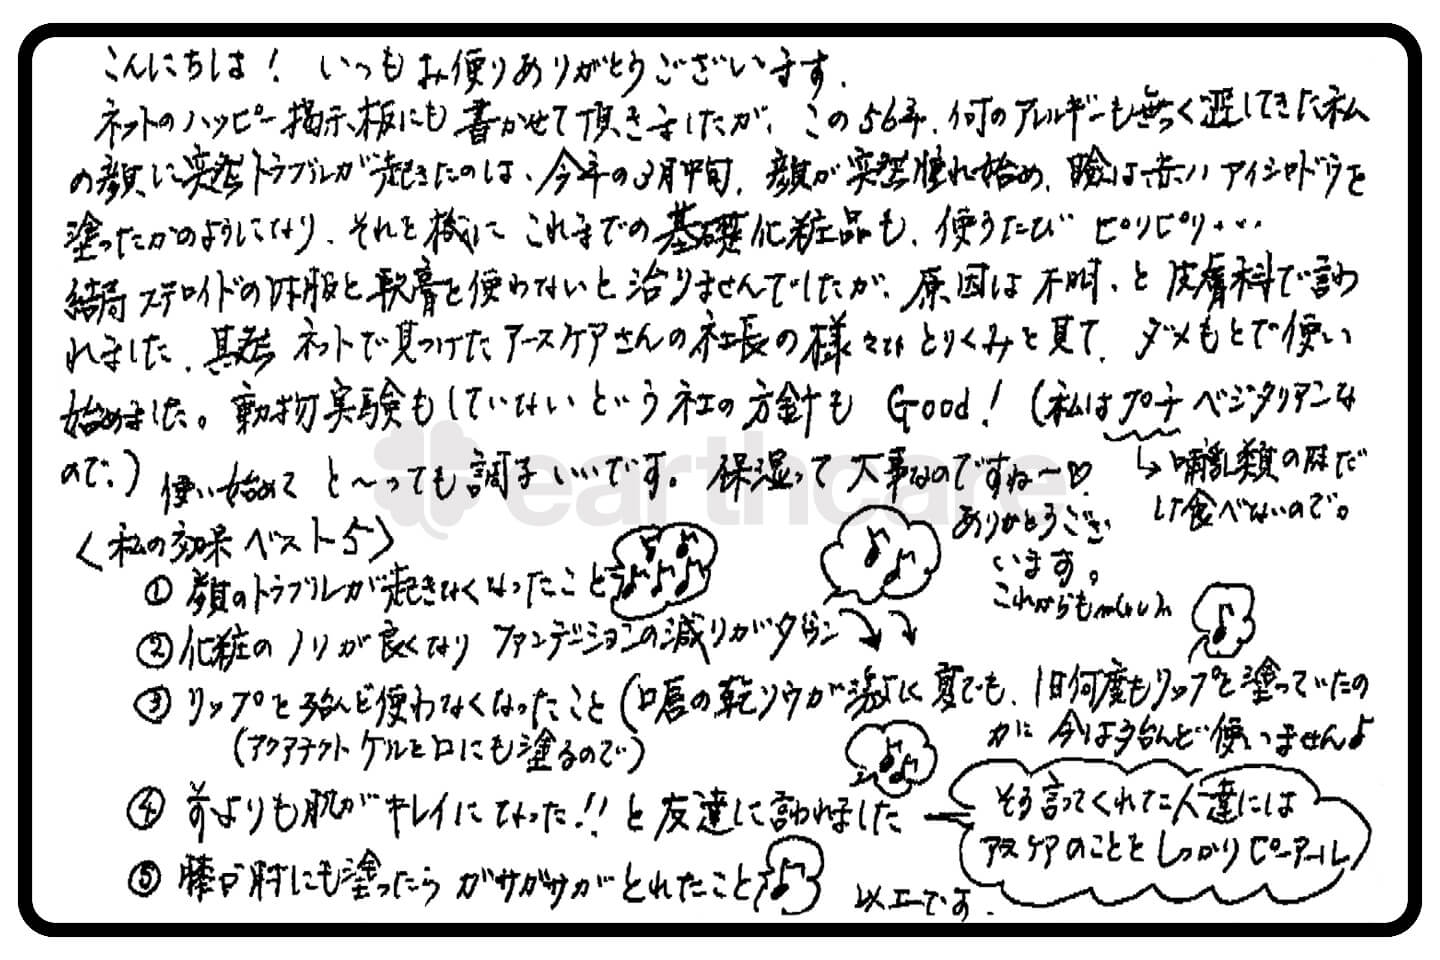 こんにちは! いつもお便りありがとうございます.
ネットのハッピー掲示板にも書かせて頂きましたが、この56年、何のアレルギーも無く過してきた私
の顔に突然トラブルが起きたのは、今年の3月中旬、顔が突然腫れ始め、瞼は赤いアイシャドウを
塗ったかのようになり、それを機にこれまでの基礎化粧品も、使うたび ピリピリ・・・
結局ステロイドの内服と軟膏を使わないと治りませんでしたが、原因は不明、と皮膚科で言わ
れました. 其発 ネットで見つけたアースケアさんの社長の様々なとりくみを見て、ダメもとで使い
始めました。動物実験もしていないという社の方針も Good! (私はプチベジタリアンな
ので、) 使い始めて と〜っても調子いいです。保湿って大事なのですね〜♡
↳哺乳類の豚だ
け食べないので。
ありがとうござ
います。
これからもm(_ _)m
earthcare
<私の効果ベスト5>
① 顔のトラブルが起きなくなったこと
② 化粧のノリが良くなり ファンデーションの減りがダウン
③ リップを殆んど使わなくなったこと (口唇の乾ソウが激しく夏でも、1日何度もリップを塗っていたの
が今は殆んど使いませんよ
(アクアテクトゲルを口にも塗るので)
④ 前よりも肌がキレイになった!! と友達に言われました
そう言ってくれた人達には
アースケアのことをしっかりピーアール
⑤ 膝や肘にも塗ったらガサガサがとれたこと
以上です.